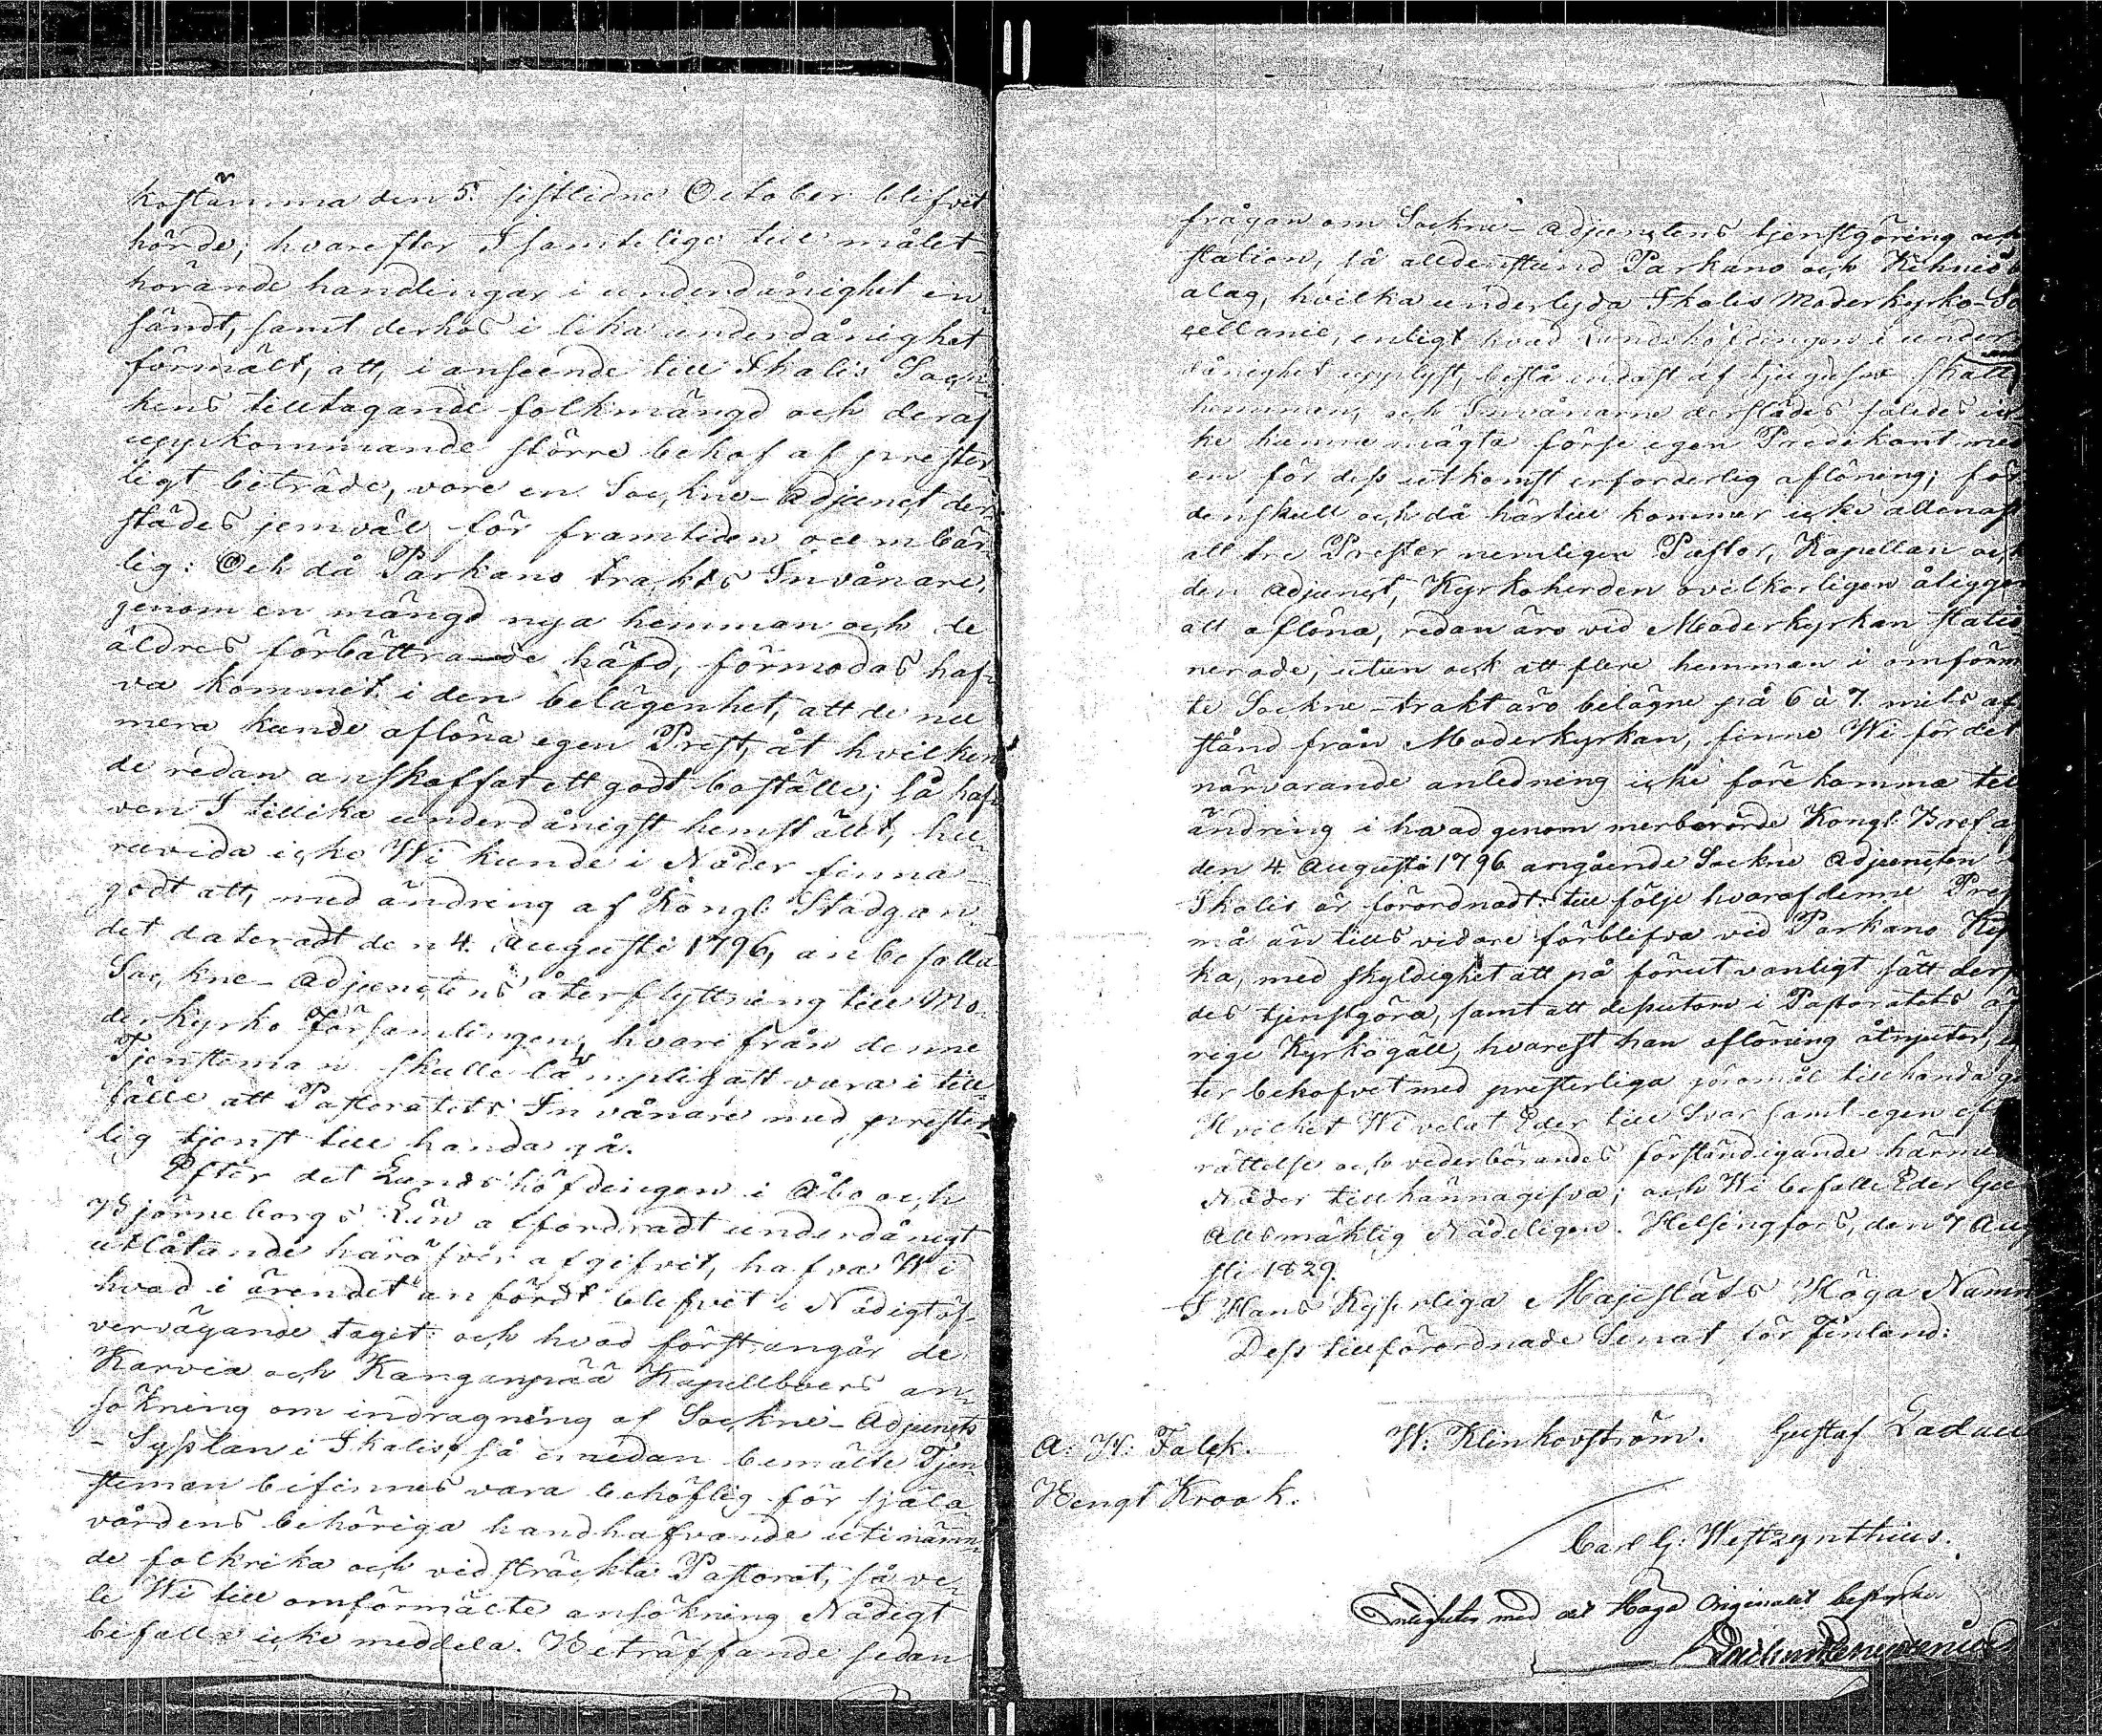 kostämma den 5. sistlidne October blifvit
hörde; hvarefter I samtelige till målet
hörande handlingar i underdånighet in-
sändt, samt derhos i lika underdånighet
förmält, att, i anseende till Ikalis Sock-
kens tilltagande folkmängd och deraf
uppkommande större behof af prester-
ligt biträde, vore en Sockne-Adjunct der-
städes jemväl för framtiden oumbär-
lig: Och då Parkano trakts Invånare,
genom en mängd nya hemman och de
äldres förbättrande häfd, förmodas haf-
va kommit i den belägenhet, att de nu
mera kunde aflöna egen Prest, åt hvilken
de redan anskaffat ett godt boställe; så haf-
ven I tillika underdånigst hemställt, hu-
ruvida icke Wi kunde i Nåder finna
godt att, med ändring af Kongl. Stadgan-
det dateradt den 4. Augusti 1796, anbefalla
Sockne-Adjunctens återflyttning till Mo-
derkyrko Församlingen, hvarifrån denne
Tjensteman skulle lämpligatt vara i till-
fälle att Pastoratets Invånare med prester-
lig tjenst till handa gå.
Efter det Landshöfdingen i Åbo och
Björneborgs Län affordradt underdånigt
utlåtande häröfver afgifvit, hafva Wi
hvad i ärendet anfördt blifvit i Nådigt öf-
vervägande tagit: och hvad först angår de
Karvia och Kanganpää Kapellboers an-
sökning om indragning af Sockne-Adjuncts
-Sysslan i Ikalis, så emedan bemälte Tjen-
steman befinnes vara behöflig för själa-
vårdens behöriga handhafvande uti nämn-
de folkrika och vidsträckta Pastorat, så ve-
le Wi till omförmälte ansökning Nådigt
bifall icke meddela. Beträffande sedan
frågan om Sockne-Adjunctens tjenstgöring och
station, så alldenstund Parkano och Kihniö
alag, hvilka underlyda Ikalis Moderkyrko-
cellanie, enligt hvad Landshöfdingen i under-
dånighet upplyst, bestå endast af tjugusex Skatte
hemman, och Invånarne derstädes således ic-
ke kunna mägta förse egen Predikant med
en för dess utkomst erforderlig aflöning; för
denskull och då härtill kommer icke allenast
att tre Prester nemligen Pastor, Kapellan och
den Adjunct, Kyrkoherden ovilkorligen åligger
att aflöna, redan äro vid Moderkyrkan statio-
nerade, utan ock att flere hemman i omförm
te Sockne-trakt äro belägne på 6 à 7 mils af-
stånd från Moderkyrkan, finne Wi för det
närvarande anledning icke förekomma till
ändring i hvad genom merberörde Kongl. Bref af
den 4 Augusti 1796 angående Sockne Adjuncten
Ikalis är förordnadt: till följe hvaraf denne Prest
må än tills vidare förblifva vid Parkano Kyr
ka, med skyldighet att på förut vanligt sätt derstä
des tjenstgöra, samt att dessutom i Pastoratets öf-
rige Kyrkogäll, hvarest han aflöning åtnjuter, ef-
ter behofvet med presterliga göromål tillhanda gå.
Hvilket Wi velat Eder till Svar samt egen efter
rättelse och vederbörandes förständigande härmed
Nåder tillkännagifva; och Wi befalle Eder Gud
Allsmäktig Nådeligen. Helsingfors, den 7 Augu
sti 1829.
I Hans Kejserliga Majestäts Höga Namn
Dess tillförordnade Senat för Finland:
A: W: Falck. W: Klinkovström. Gustaf Ladau
Bengt Krook.
Carl G: Westzynthius.
Enligheten med det Höga Originalet bestyrker